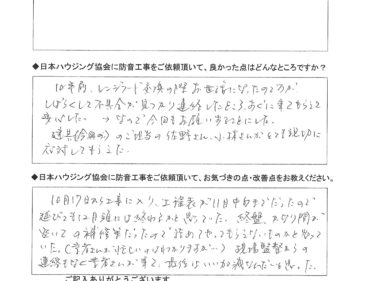 ◆日本ハウジング協会に防音工事をご依頼頂いて、良かった点はどんなところですか？
10年前、レンジフード交換の際お世話になったのですが
しばらくして不具合が見つかり連絡したところ、すぐに来てもらえて
安心した。→なので今回もお願いすることにした。
のご担当の佐野さん、小林さんがとても親切に
応対してもらえた。
◆日本ハウジング協会に防音工事をご依頼頂いて、お気づきの点・改善点をお教えください。
10月17日から工事に入り、工程表が11月中旬までだったので
延びても12月頭には終わるかと思っていた。終盤、かなり間が
空いての補修等だったので
た。( さんが忙しいのはわかりますが…) 現場監督からの
連絡もなく さんが来て、 と思った。
ご記入ありがとうございます